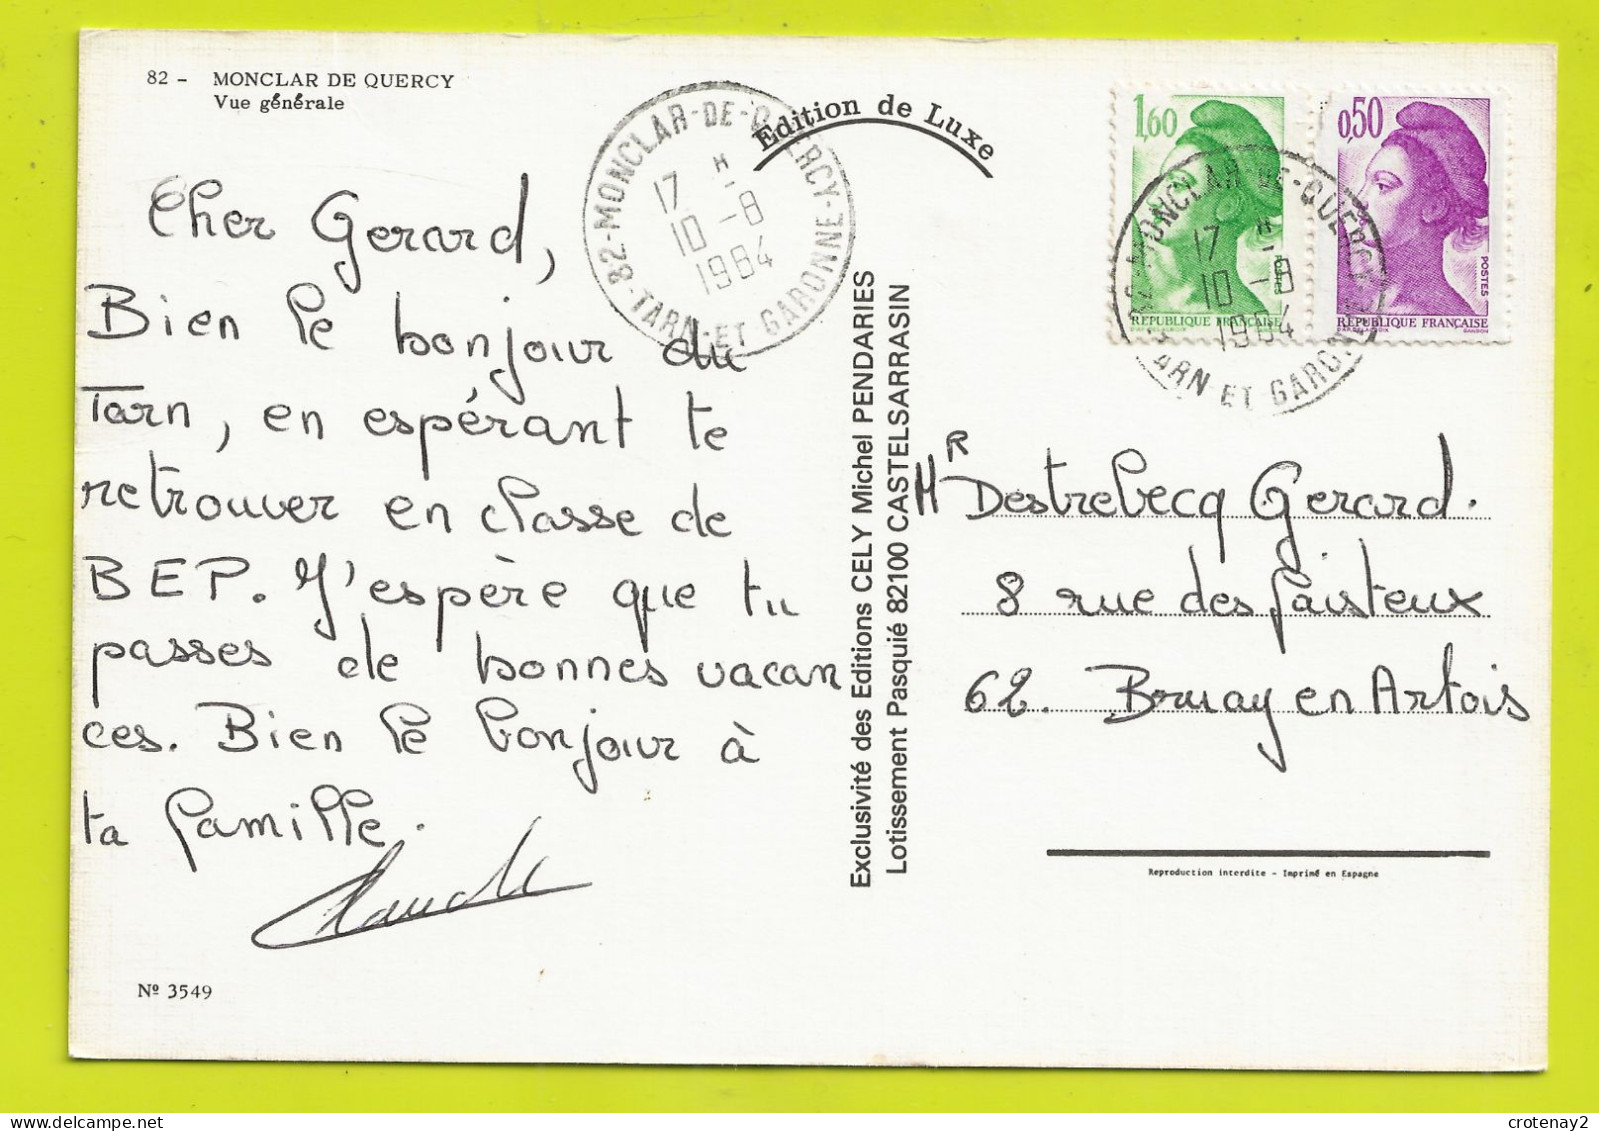 82 - MONCLAR DE QUERCY
Vue générale
Cher Gerard,
Bien le bonjour du
Tarn, en espérant te
retrouver en classe de
BEP. J'espère que tu
passes de bonnes vacan
ces. Bien le bonjour à
ta famille.
Claude
Nº 3549
82-MONCLAR-DE-QUERCY-TARN-ET GARONNE
17 H
10-8
1984
Edition de Luxe
Exclusivité des Editions CELY Michel PENDARIES
Lotissement Pasquié 82100 CASTELSARRASIN
1,60
POSTES
REPUBLIQUE FRANÇAISE
0,50
POSTES
REPUBLIQUE FRANÇAISE
82-MONCLAR-DE-QUERCY-TARN-ET GARONNE
17 H
10-8
1984
Mr Destrebecq Gerard.
8 rue des
62. Bruay en Artois
Reproduction interdite - Imprimé en Espagne
crotenay2